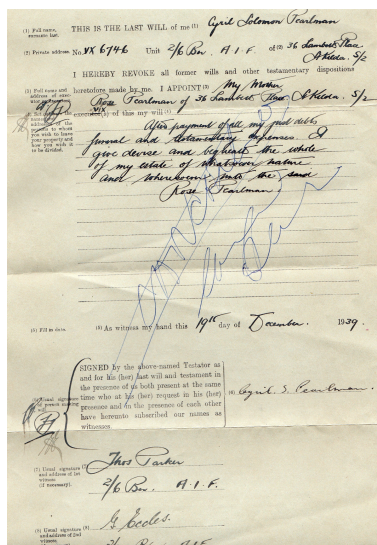 (1) Full name, surname last.
THIS IS THE LAST WILL of me (1) Cyril Solomon Pearlman
(2) Private address.
No. VX 6746 Unit 2/6 Bn. A.I.F. of (2) 36 Lambeth Place
St Kilda. S/2
I HEREBY REVOKE all former wills and other testamentary dispositions
heretofore made by me. I APPOINT (3) My Mother
(3) Full name and address of
Rose Pearlman of 36 Lambeth Place St Kilda. S/2
vix
execut(rix) of this my will (4)
to whom you wish to leave your property and how you wish it to be divided.
After payment of all my just debts
funeral and testamentary expenses. I
give devise and bequeath the whole
of my estate of whatsoever nature
and wheresoever unto the said
Rose Pearlman.
(5) Fill in date.
(5) As witness my hand this 19th day of December. 1939.
SIGNED by the above-named Testator as
and for his (her) last will and testament in
the presence of us both present at the same
time who at his (her) request in his (her)
presence and in the presence of each other
have hereunto subscribed our names as
witnesses
(6) Usual signature of person making will.
(6) Cyril. S. Pearlman.
(7) Usual signature and address of 1st witness. (if necessary).
(7) Thos Parker
2/6 Bn. A.I.F.
(8) Usual signature and address of 2nd witness.
(8) G. Eccles.
2/6 Bn. A.I.F.